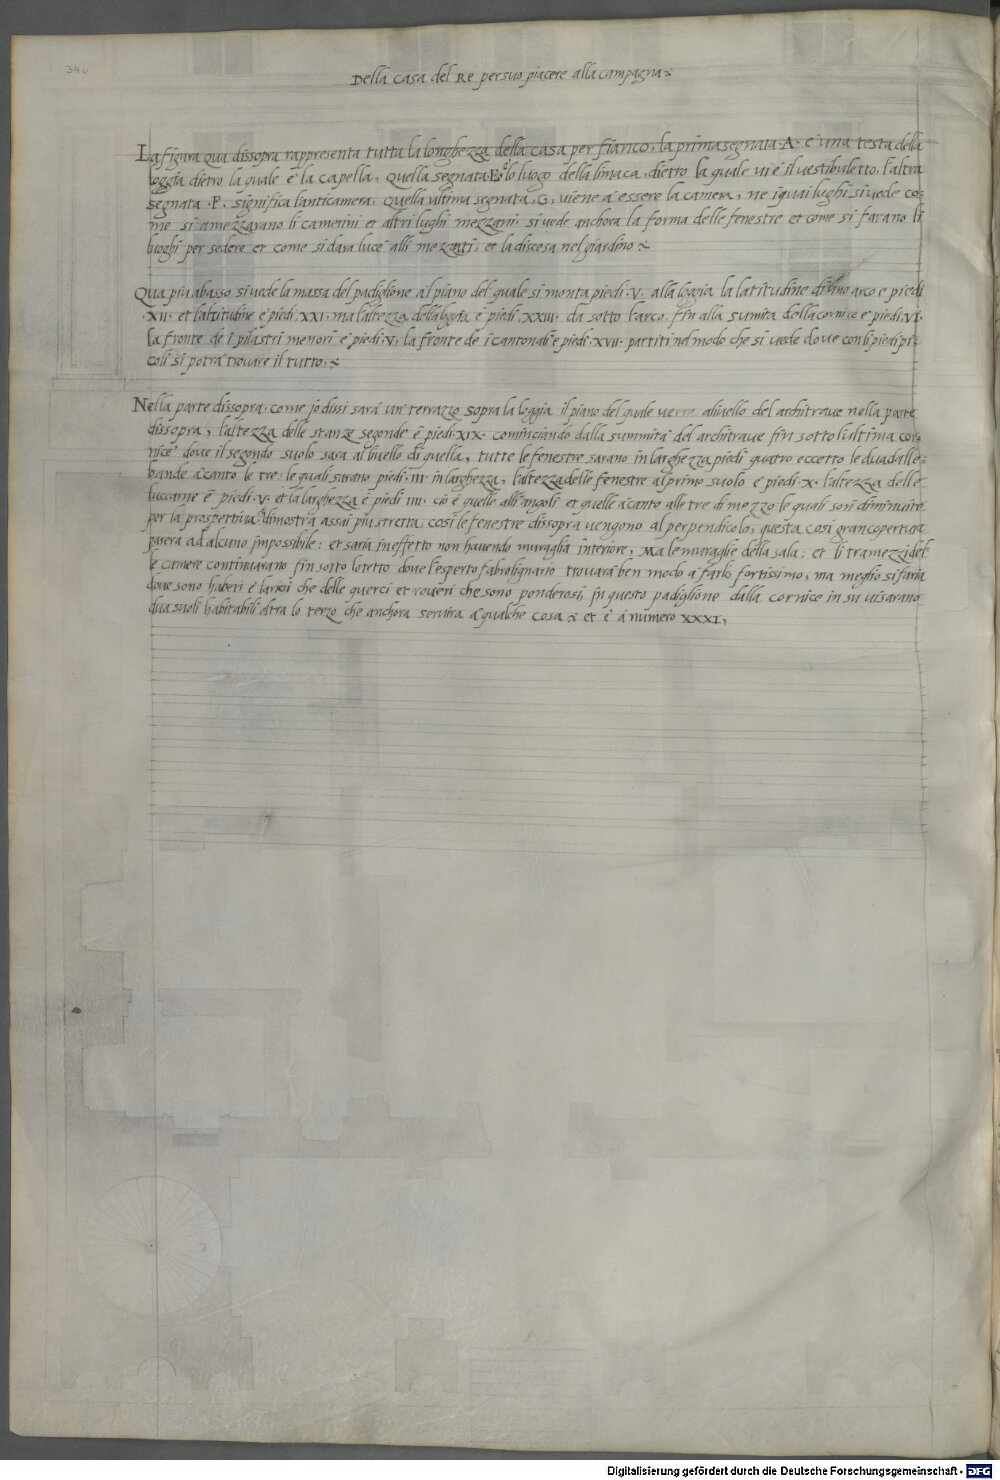 34v
Della casa del Re per suo piacere alla campagna
La figura qua dissopra rappresenta tutta la longhezza della casa per fianco, la prima segnata · A · e una testa della
loggia dietro la quale e la capella, Quella segnata · E · e lo luogo della limaca, dietro la quale vi è il vestibuletto, l'altra
segnata · F · significa l'anticamera, Quella ultima segnata, G, viene a essere la camera, ne i quai lughi si vede co:
me si amezzarano li camerini et altri lughi mezzani: si vede anchora la forma delle fenestre et come si farano li
luoghi per sedere et come si dara luce alli mezzati, et la discesa nel giardino
Qua piu abasso si vede la massa del padiglione al piano del quale si monta piedi · V · alla loggia la latitudine di uno arco e piedi
· XII · et l'altitudine e piedi · XXI · ma l'altezza della loggia e piedi · XXIII · da sotto l'arco, fin alla sumita della cornice e piedi · VI ·
la fronte de i pilastri menori e piedi · V · la fronte de i cantonali e piedi · XVII · partiti nel modo che si vede dove con li piedi pi:
coli si potra trovare il tutto,
Nella parte dissopra · come jo dissi sarà un terrazzo sopra la loggia il piano del quale verra alivello del architrave nella parte
dissopra, l'altezza delle stanze segonde e piedi · XIX · cominciando dalla summita del architrave fin sotto l'ultima cor:
nice dove il segondo suolo sara al livello di quella, tutte le fenestre sarano in larghezza piedi quatro eccetto le dua dalle
bande a canto le tre: le quali sarano piedi · III · in larghezza, l'altezza delle fenestre al primo suolo e piedi · X · l'altezza delle
luccarne e piedi · V · et la larghezza e piedi IIII · cio e quelle alli angoli et quelle a canto alle tre di mezzo le quali son diminuite
per la prospettiva dimostra assai piu stretta, cosi le fenestre dissopra vengono al perpendicolo, questa cosi gran copertura
parera ad alcuno impossibile: et saria in effetto non havendo muraglia interiore, Ma le muraglie della sala: et li tramezzi del:
le camere continuarano fin sotto lo tetto dove l'esperto fabrolignario trovara ben modo a farlo fortissimo, ma meglio si faria
dove sono habeti e larici che delle querci et roveri che sono ponderosi, in questo padiglione dalla cornice in su vi sarano
dua suoli habitabili altra lo terzo che anchora servira a qualche cosa et e a numero XXXI,
Digitalisierung gefördert durch die Deutsche Forschungsgemeinschaft - DFG